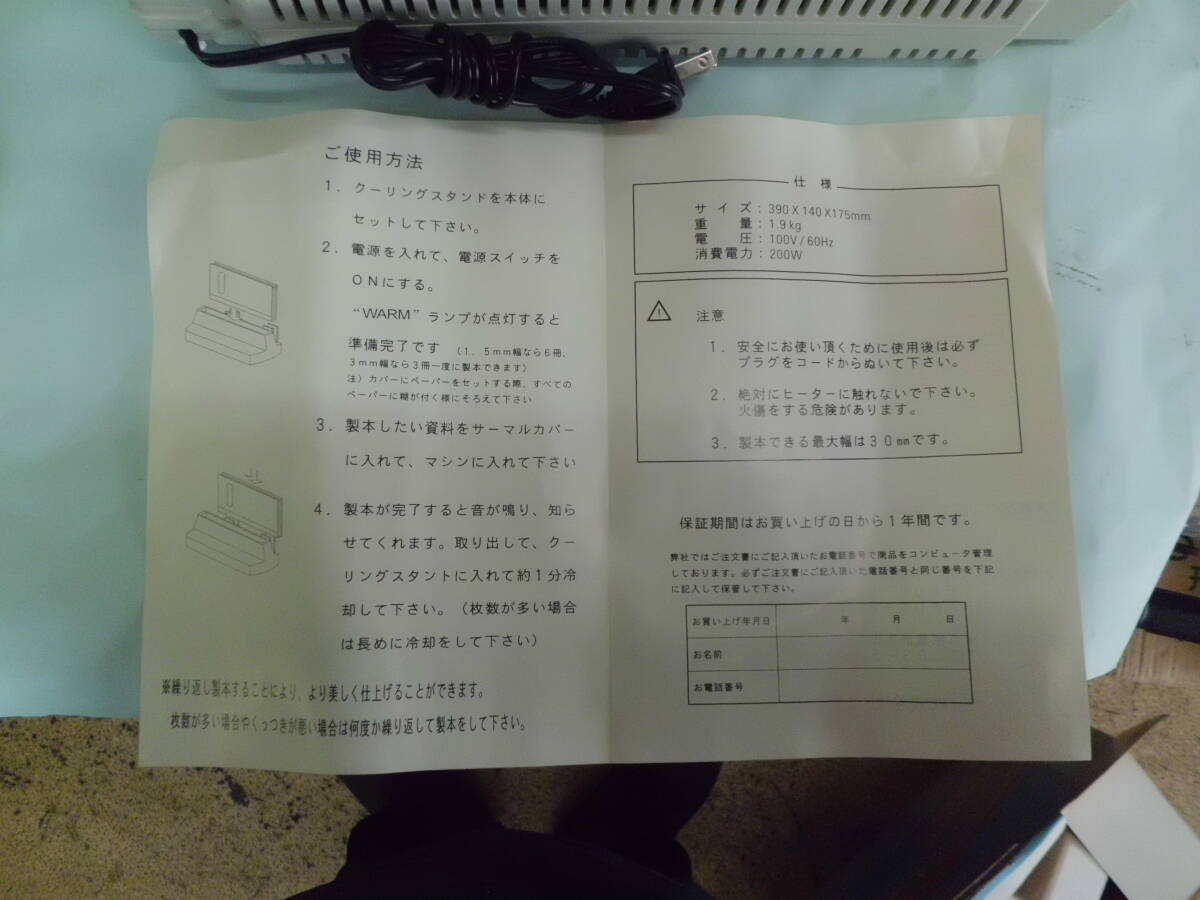 ご使用方法
1．クーリングスタンドを本体に
セットして下さい。
2．電源を入れて、電源スイッチを
ONにする。
“WARM”ランプが点灯すると
準備完了です （1．5mm幅なら6冊、
3mm幅なら3冊一度に製本できます）
注）カバーにペーパーをセットする際、すべての
ペーパーに糊が付く様にそろえて下さい
3．製本したい資料をサーマルカバー
に入れて、マシンに入れて下さい
4．製本が完了すると音が鳴り、知ら
せてくれます。取り出して、クー
リングスタントに入れて約1分冷
却して下さい。（枚数が多い場合
は長めに冷却をして下さい）
※繰り返し製本することにより、より美しく仕上げることができます。
枚数が多い場合やくっつきが悪い場合は何度か繰り返して製本をして下さい。
仕様
サイズ：390X140X175mm
重量：1.9kg
電圧：100V/60Hz
消費電力：200W
注意
1．安全にお使い頂くために使用後は必ず
プラグをコードからぬいて下さい。
2．絶対にヒーターに触れないで下さい。
火傷をする危険があります。
3．製本できる最大幅は30mmです。
保証期間はお買い上げの日から1年間です。
弊社ではご注文書にご記入頂いたお電話番号で商品をコンピュータ管理
しております。必ずご注文書にご記入頂いた電話番号と同じ番号を下記
に記入して保管して下さい。
お買い上げ年月日 年 月 日
お名前
お電話番号